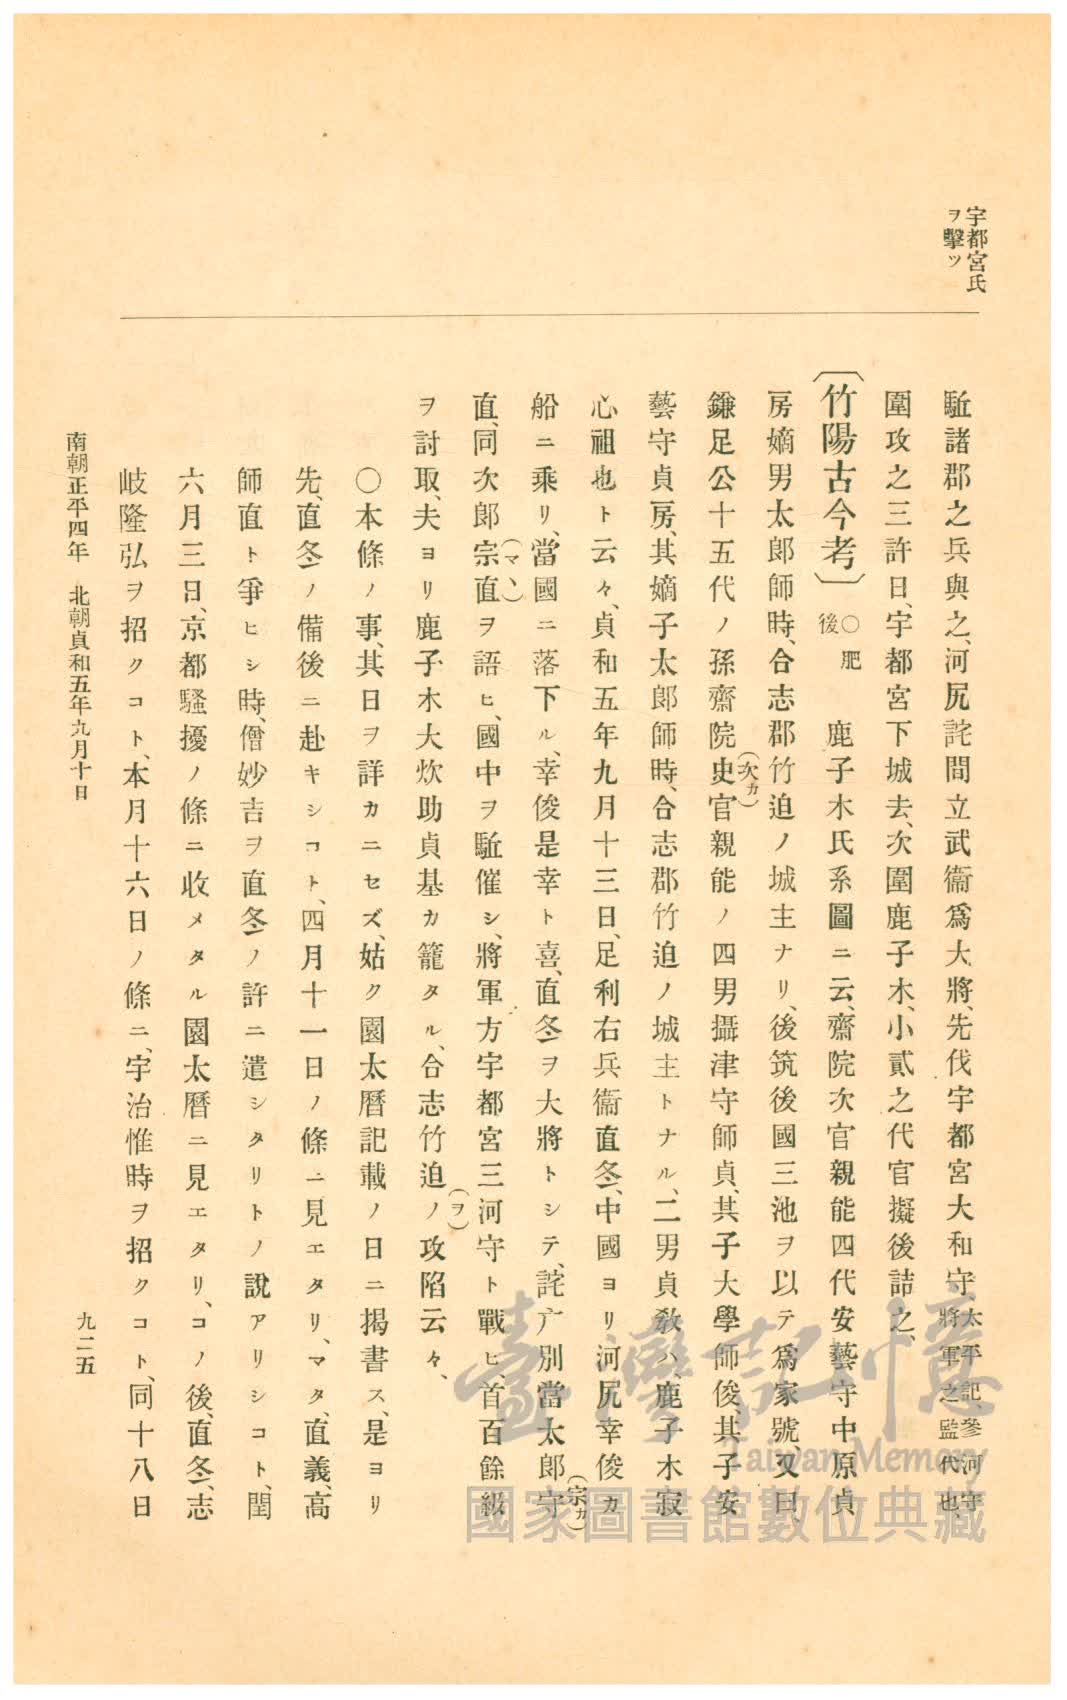 宇都宮氏
ヲ擊ツ
駈諸郡之兵與之、河尻詫間立武衞爲大將、先伐宇都宮大和守、太平記、參河守、將軍之監代也、
圍攻之三許日、宇都宮下城去、次圍鹿子木、小貳之代官擬後詰之、
〔竹陽古今考〕○肥後 鹿子木氏系圖ニ云、齋院次官親能四代安藝守中原貞
房嫡男太郎師時、合志郡竹迫ノ城主ナリ、後筑後國三池ヲ以テ爲家號、又曰、
鎌足公十五代ノ孫齋院史(次カ)官親能ノ四男攝津守師貞、其子大學師俊、其子安
藝守貞房、其嫡子太郎師時、合志郡竹迫ノ城主トナル、二男貞教ハ、鹿子木寂
心祖也ト云々、貞和五年九月十三日、足利右兵衞直冬、中國ヨリ河尻幸俊カ
船ニ乘リ、當國ニ落下ル、幸俊是幸ト喜、直冬ヲ大將トシテ、詫广別當太郎守(宗カ)
直、同次郎宗直(マヽ)ヲ語ヒ、國中ヲ駈催シ、將軍方宇都宮三河守ト戰ヒ、首百餘級
ヲ討取、夫ヨリ鹿子木大炊助貞基カ籠タル、合志竹迫ノ(ヲ)攻陷云々、
○本條ノ事、其日ヲ詳カニセズ、姑ク園太曆記載ノ日ニ揭書ス、是ヨリ
先、直冬ノ備後ニ赴キシコト、四月十一日ノ條ニ見エタリ、マタ、直義、高
師直ト爭ヒシ時、僧妙吉ヲ直冬ノ許ニ遣シタリトノ說アリシコト、閏
六月三日、京都騷擾ノ條ニ收メタル園太曆ニ見エタリ、コノ後、直冬、志
岐隆弘ヲ招クコト、本月十六日ノ條ニ、宇治惟時ヲ招クコト、同十八日
南朝正平四年 北朝貞和五年九月十日
九二五
臺灣記憶
Taiwan Memory
國家圖書館數位典藏